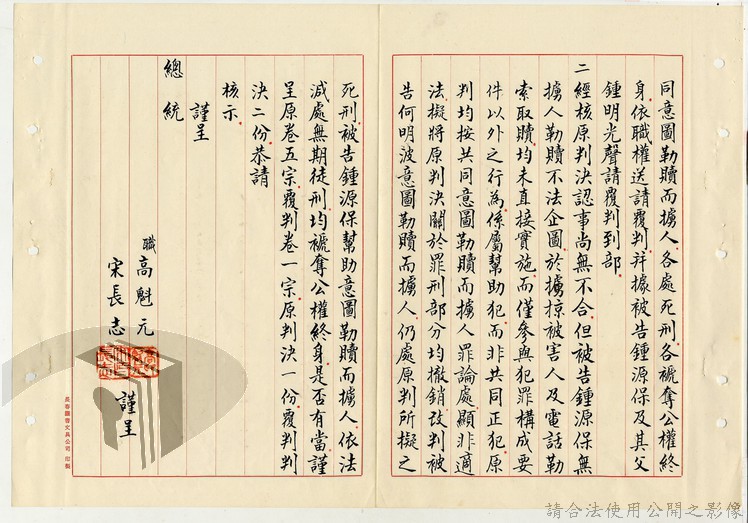 同意圖勒贖而擄人各處死刑各褫奪公權終
身依職權送請覆判并據被告鍾源保及其父
鍾明光聲請覆判到部
二經核原判決認事尚無不合但被告鍾源保無
擄人勒贖不法企圖於擄掠被害人及電話勒
索取贖均未直接實施而僅參與犯罪構成要
件以外之行為係屬幫助犯而非共同正犯原
判均按共同意圖勒贖而擄人罪論處顯非適
法擬將原判決關於罪刑部分均撤銷改判被
告何明波意圖勒贖而擄人仍處原判所擬之
死刑被告鍾源保幫助意圖勒贖而擄人依法
減處無期徒刑均褫奪公權終身是否有當謹
呈原卷五宗覆判卷一宗原判決一份覆判判
決二份恭請
核示
謹呈
總統
職高魁元
宋長志
謹呈
請合法使用公開之影像